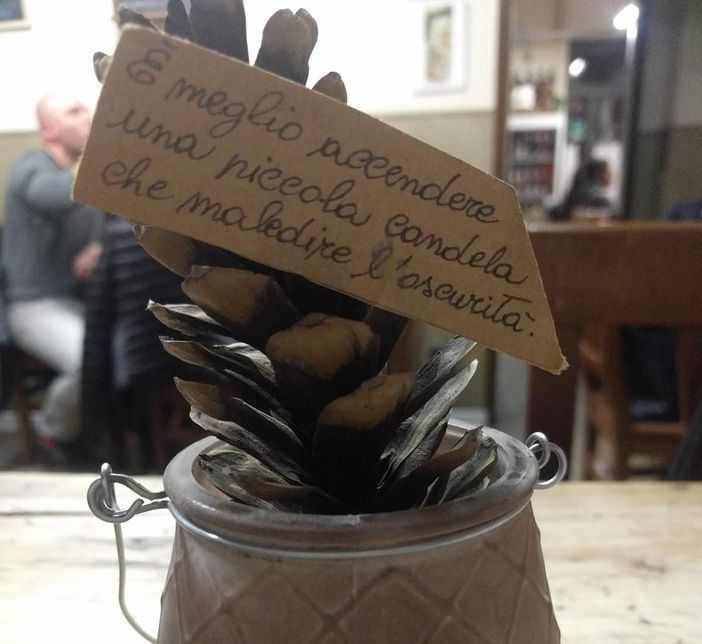 È meglio accendere
una piccola candela
che maledire l'oscurità.